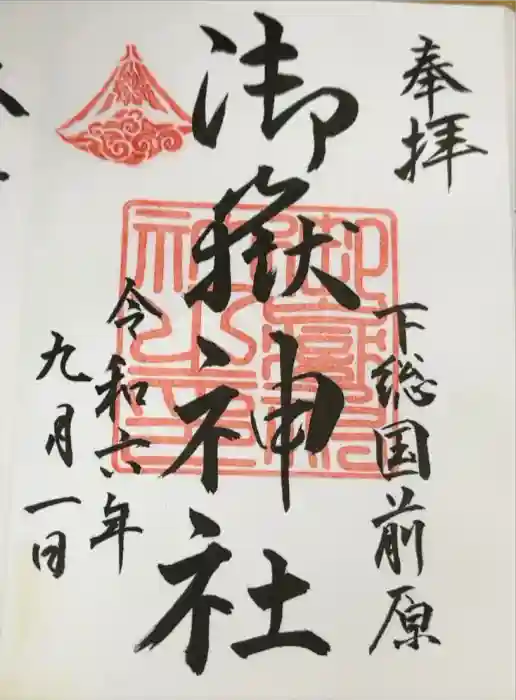 奉拝
下総国前原
御嶽神社
令和六年
九月一日